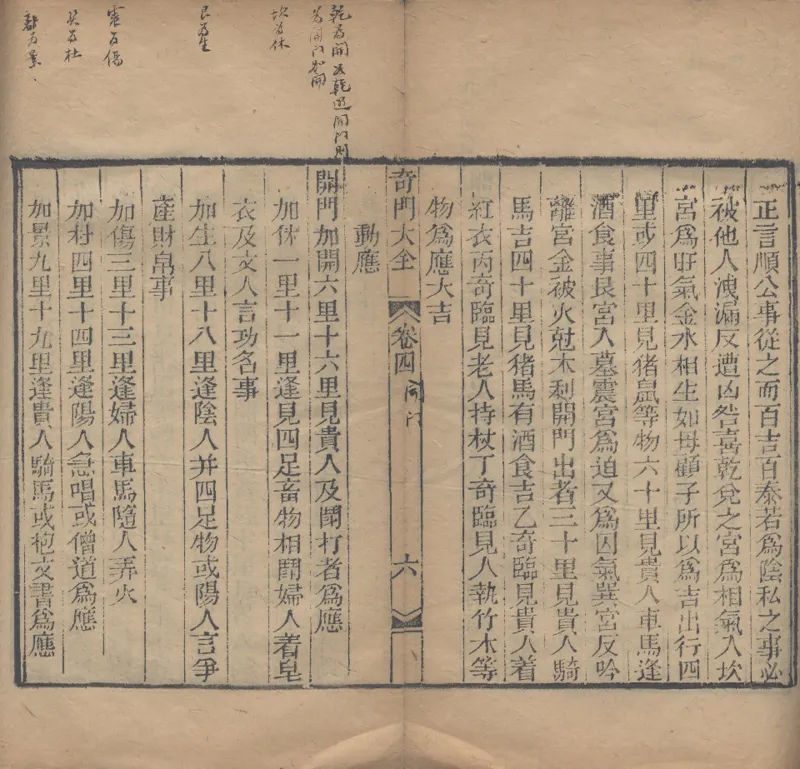 乾为開又乾遇開门則
为開门
坎为休
艮为生
震为傷
巽为杜
離为景
正言順公事從之而百吉百泰若爲陰私之事必
被他人洩漏反遭凶咎喜乾兌之宮爲相氣入坎
宮爲旺氣金水相生如母顧子所以爲吉出行四
里或四十里見猪鼠等物六十里見貴人車馬逢
酒食事艮宮入墓震宮爲迫又爲囚氣巽宮反吟
離宮金被火尅木剩開門出者三十里見貴人騎
馬吉四十里見猪馬有酒食吉乙奇臨見貴人着
紅衣丙奇臨見老人持杖丁奇臨見人執竹木等
物爲應大吉
奇門大全 卷四 開门 六
動應
開門加開六里十六里見貴人及鬪打者爲應
加休一里十一里逢見四足畜物相鬪婦人着皂
衣及文人言功名事
加生八里十八里逢陰人并四足物或陽人言爭
產財帛事
加傷三里十三里逢婦人車馬隨人弄火
加村四里十四里逢陽人急唱或僧道爲應
加景九里十九里逢貴人騎馬或抱文書爲應